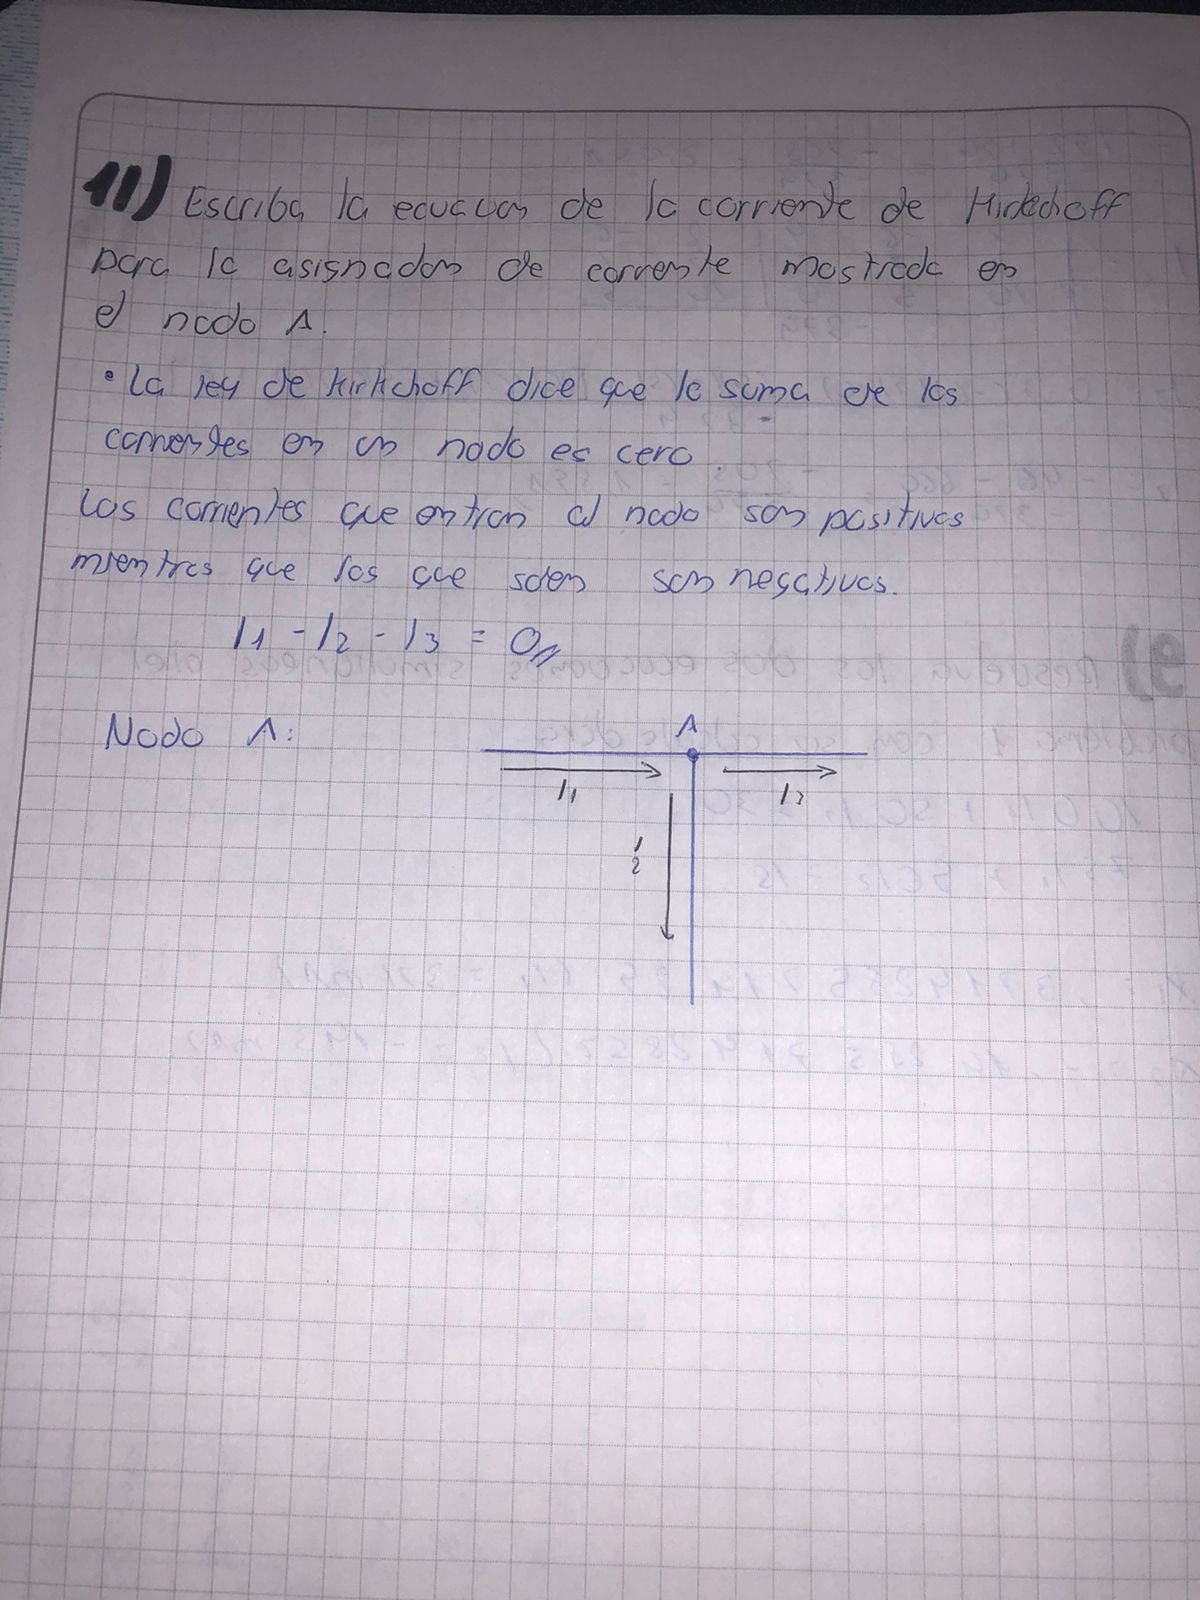 11) Escriba la ecuacion de la corriente de Kirkchoff
para la asignacion de corriente mostrada en
el nodo A.
• La ley de Kirkchoff dice que la suma de las
corrientes en un nodo es cero.
Las corrientes que entran al nodo son positivas
mientras que las que salen son negativas.
I1 - I2 - I3 = 0
Nodo A:
A
I1
I3
I2